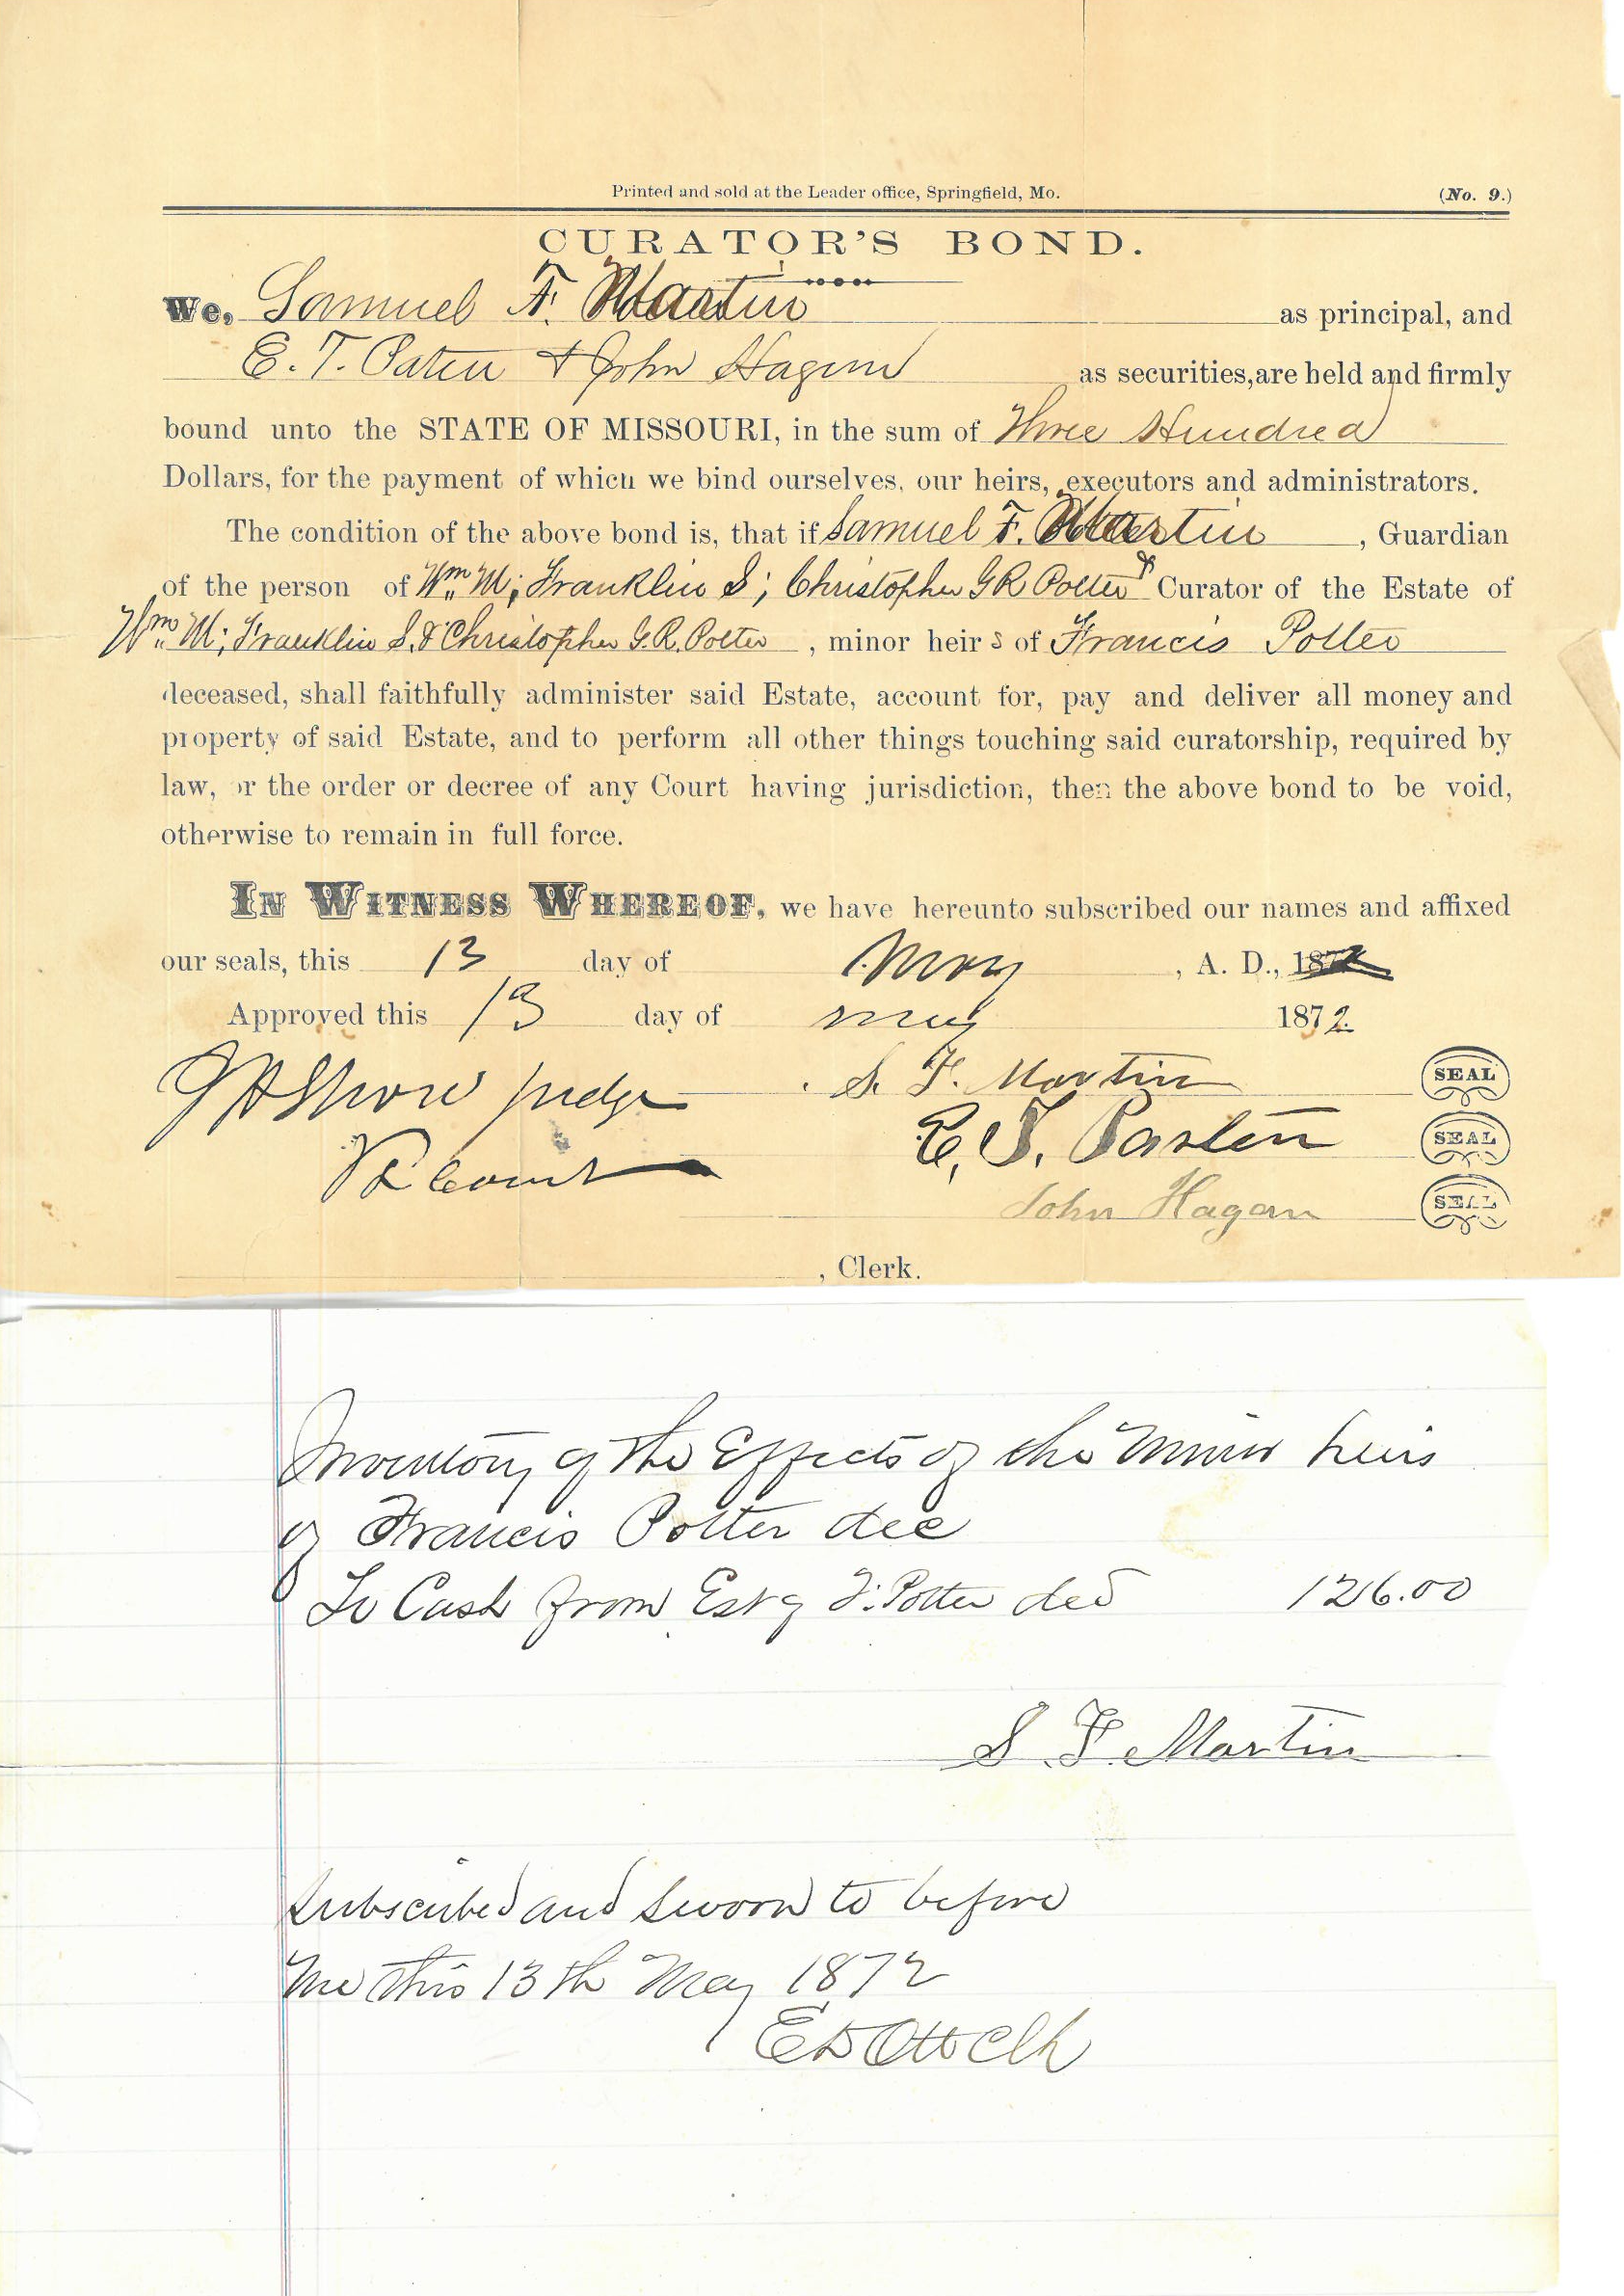 Printed and sold at the Leader office, Springfield, Mo. (No. 9.)
CURATOR'S BOND.
We, Samuel F. Martin as principal, and
E. T. Paten & John Hagan as securities, are held and firmly
bound unto the STATE OF MISSOURI, in the sum of Three Hundred
Dollars, for the payment of which we bind ourselves, our heirs, executors and administrators.
The condition of the above bond is, that if Samuel F. Martin , Guardian
of the person of Wm. M; Franklin S; Christopher G R Potter & Curator of the Estate of
Wm. M; Franklin S. & Christopher G. R. Potter , minor heirs of Francis Potter
deceased, shall faithfully administer said Estate, account for, pay and deliver all money and
property of said Estate, and to perform all other things touching said curatorship, required by
law, or the order or decree of any Court having jurisdiction, then the above bond to be void,
otherwise to remain in full force.
IN WITNESS WHEREOF, we have hereunto subscribed our names and affixed
our seals, this 13 day of May , A. D., 187
Approved this 13 day of May 1872
judge S. F. Martin SEAL
Court E. T. Pasten SEAL
John Hagan SEAL
, Clerk.
Inventory of the Effects of the Minor heirs
of Francis Potter dec
To Cash from Est of F. Potter decd 126.00
S F. Martin
Subscribed and Sworn to before
Me this 13th May 1872
E D Ott Clk